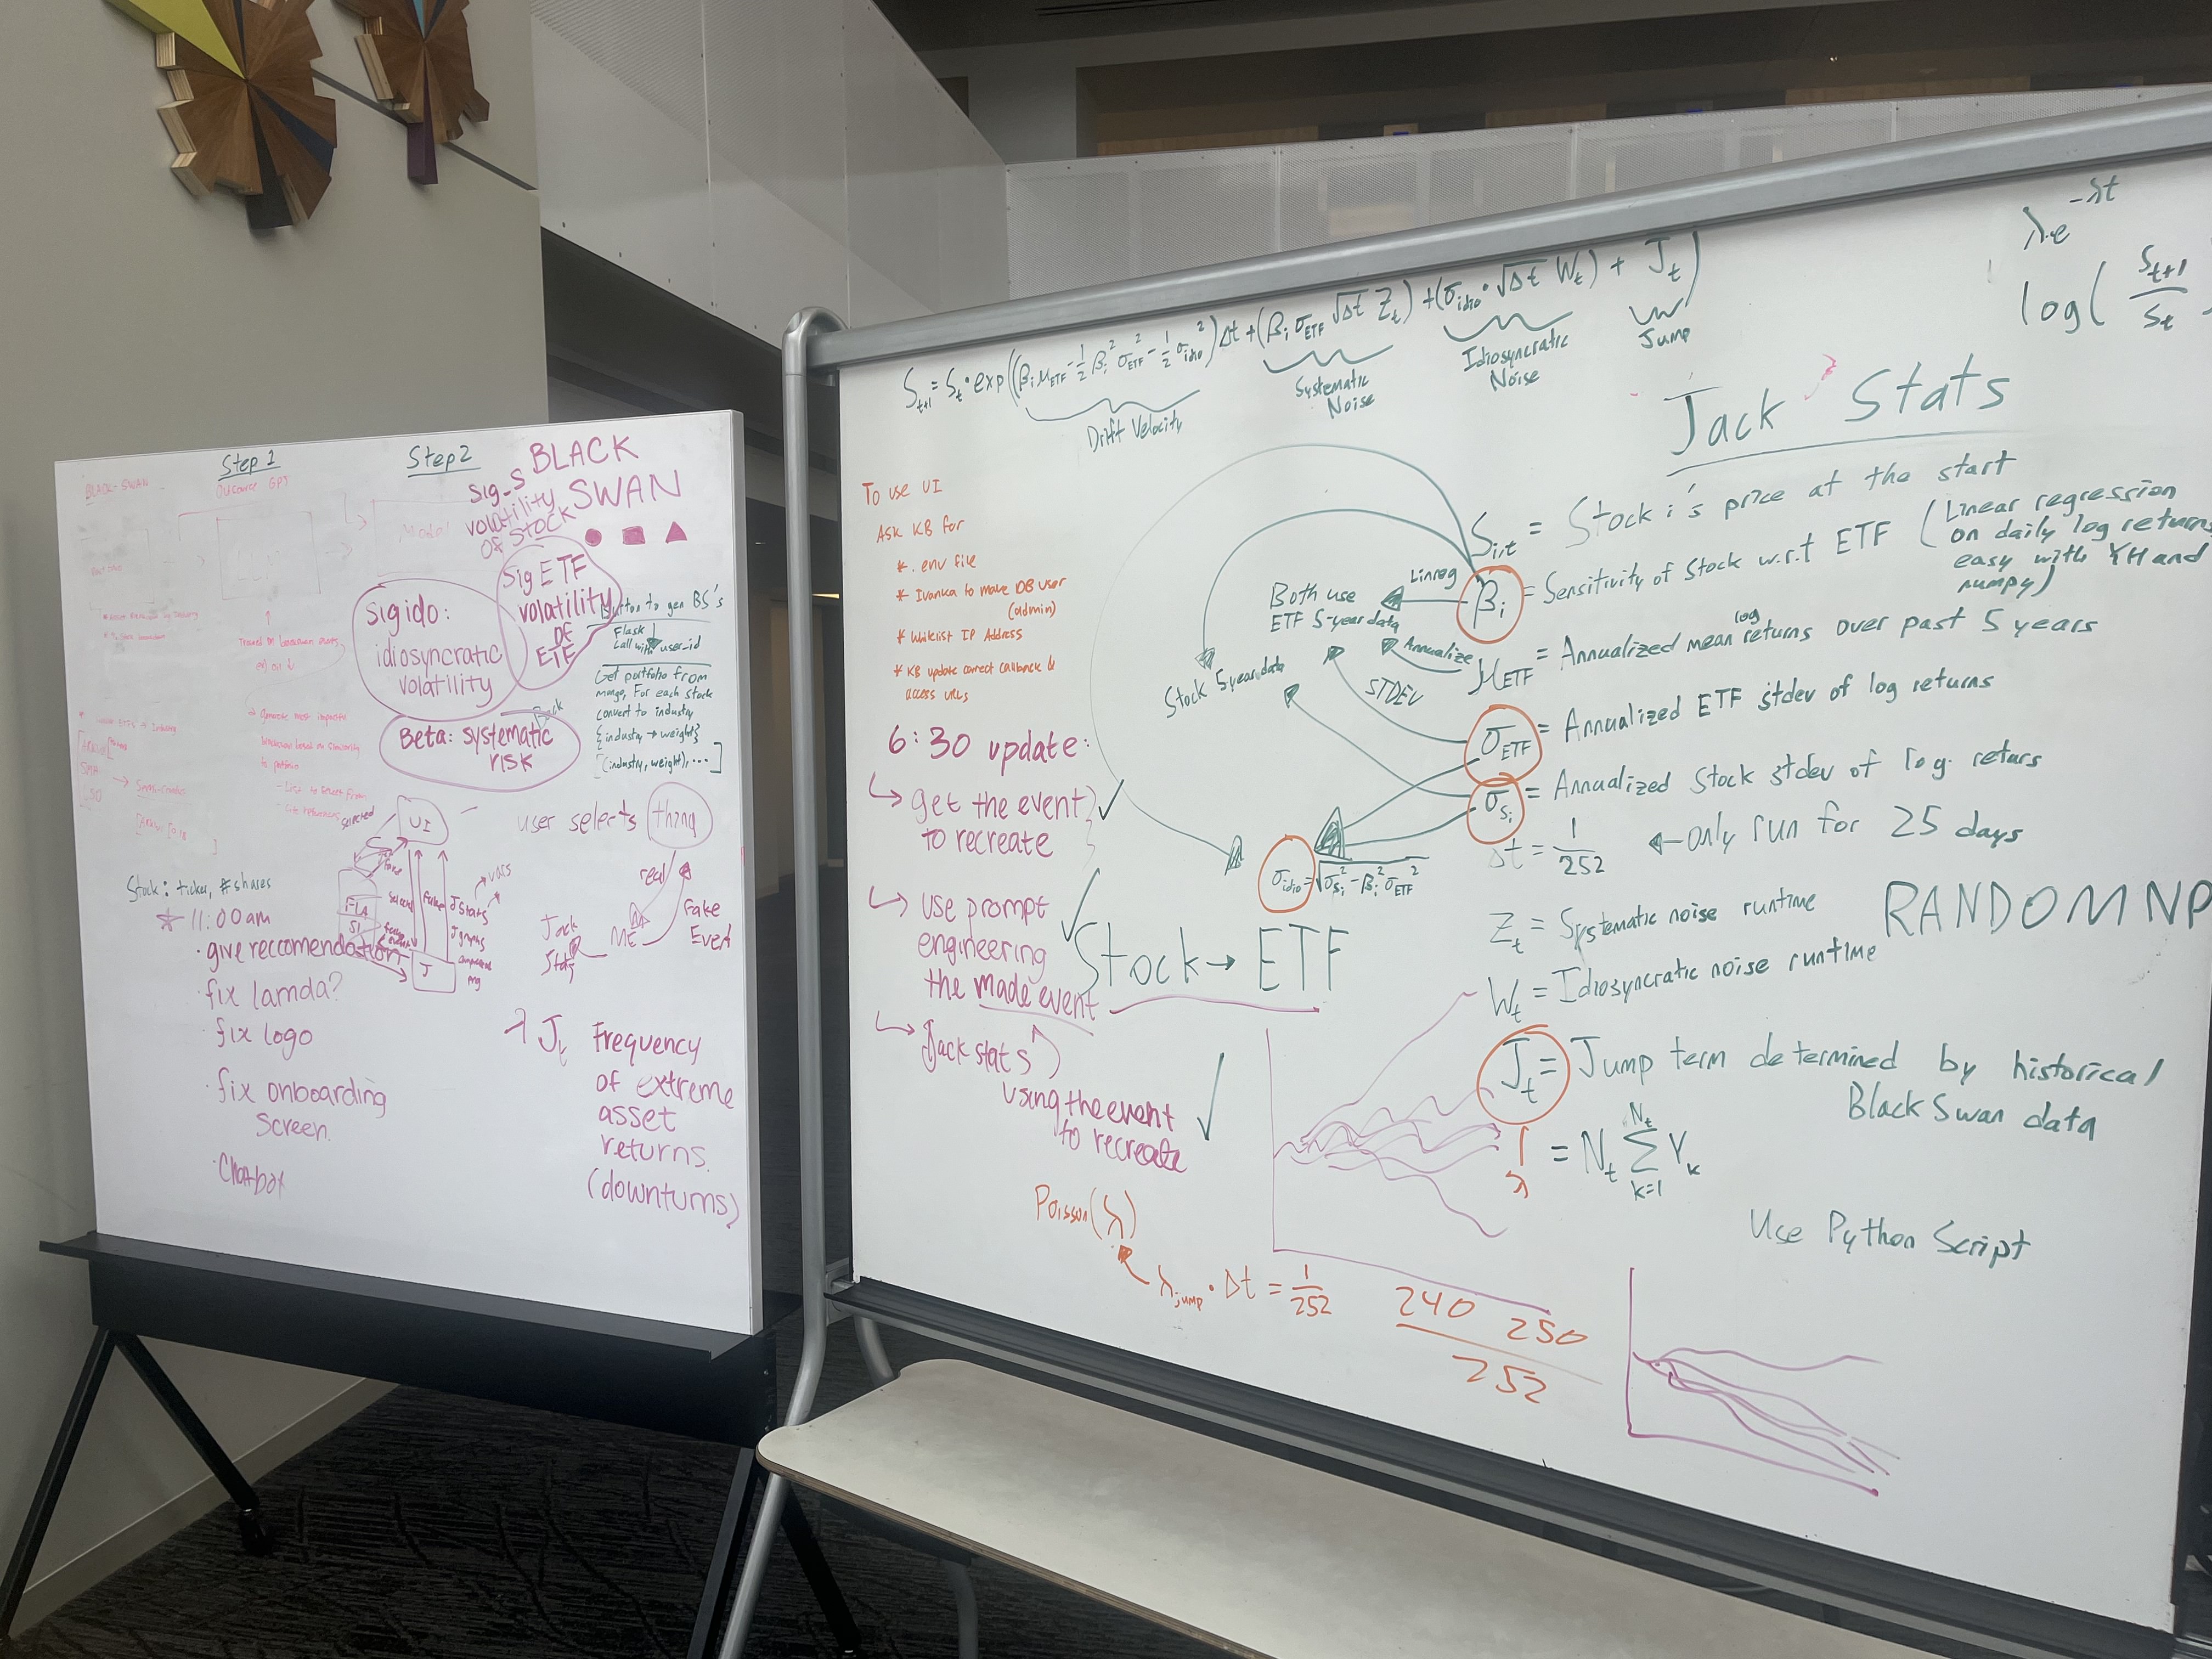 BLACK-SWAN
Step 1
Step 2
BLACK
SWAN
Sig_S
volatility
of stock
Model
Sig ETF
volatility
OF
ETF
Sigido:
idiosyncratic
volatility
Beta: systematic
risk
Button to gen BS's
Flask
Call with user_id
Get portfolio from
mongo, For each stock
convert to industry
{industry → weight}
[(industry, weight), ...]
Back
to portfolio
selected
UI
user selects thing
real
Fake
Event
ME
Jack
Stats
J
J Stats
J graphs
vars
Stock: ticker, # shares
11:00am
· give reccomendation
· fix lamda?
· fix logo
· fix onboarding
screen.
· Chatbot
λ J_t Frequency
of extreme
asset
returns.
(downturns)
S_{t+1} = S_t · exp((β_i μ_ETF - 1/2 β_i² σ_ETF² - 1/2 σ_idio²) Δt + (β_i σ_ETF √Δt Z_t) + (σ_idio · √Δt W_t) + J_t)
Drift Velocity
Systematic
Noise
Idiosyncratic
Noise
Jump
λ·e^{-λt}
log( S_{t+1} / S_t
Jack Stats
To use UI
Ask KB for
* .env file
* Ivanka to make DB user
(admin)
* Whitelist IP Address
* KB update correct callback &
access URLs
6:30 update:
↳ get the event
to recreate ✓
↳ use prompt
engineering
the made event ✓
↳ Jack stats
using the event
to recreate ✓
Both use
ETF 5-year data
Stock 5 year data
Linreg
Annualize
STDEV
σ_idio = √(σ_{S_i}² - β_i² σ_ETF²)
Stock → ETF
S_{i,t} = Stock i's price at the start
β_i = Sensitivity of Stock w.r.t ETF (Linear regression
on daily log returns
easy with YH and
numpy)
μ_ETF = Annualized mean log returns over past 5 years
σ_ETF = Annualized ETF stdev of log returns
σ_{S_i} = Annualized Stock stdev of log returs
Δt = 1/252 ← only run for 25 days
Z_t = Systematic noise runtime
RANDOM NP
W_t = Idiosyncratic noise runtime
J_t = Jump term determined by historical
Black Swan data
λ
= N_t Σ_{k=1}^{N_t} Y_k
Use Python Script
Poisson(λ)
λ_jump · Δt = 1/252
240 250
252